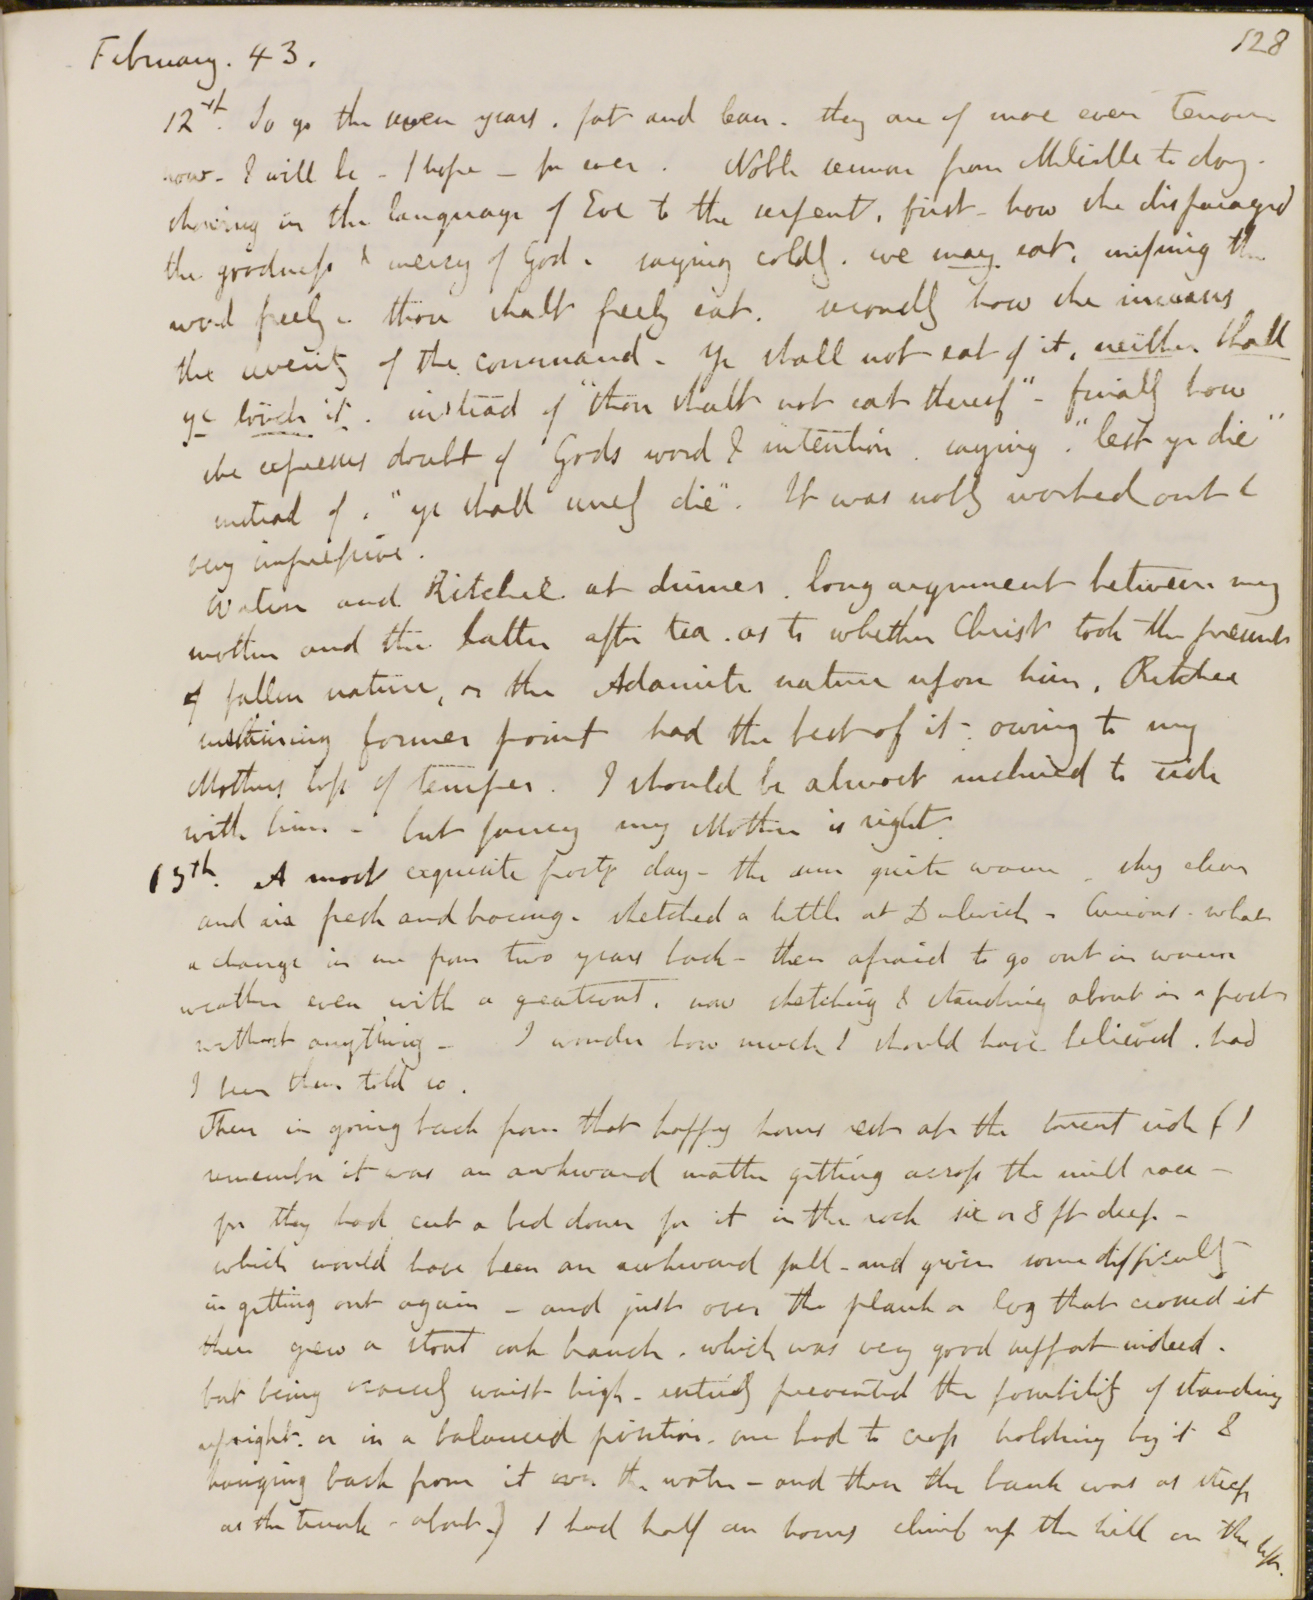 128
February. 43.
12st. So go the seven years. fat and lean. they are of more even tenour
now - I will be - I hope - for ever. Noble sermon from Melville to day -
showing in the language of Eve to the serpent, first - how she disparaged
the goodness & mercy of God. saying coldly. we may eat, missing the
word freely. thou shalt freely eat. secondly how she increases
the severity of the command - Ye shall not eat of it, neither shall
ye touch it. instead of "thou shalt not eat thereof" - finally how
she expresses doubt of Gods word & intention. saying. "lest ye die"
instead of. "ye shall surely die". It was nobly worked out &
very impressive.
and Ritchie at dinner. long argument between my
mother and the latter after tea. as to whether Christ took the
of fallen nature, or the Adamite nature upon him, Ritchie
former point had the best of it - owing to my
Mothers loss of temper. I should be almost inclined to side
with him - but fancy my Mother is right.
13th. A most exquisite frosty day - the sun quite warm - sky clear
and air fresh and bracing. sketched a little at Dulwich - Curious - what
a change in me from two years back - then afraid to go out in warm
weather even with a greatcoat. now sketching & standing about in a frost
without anything - I wonder how much I should have believed. had
I been then told so.
Then in going back from that happy hours rest at the torrent side (I
remember it was an awkward matter getting across the mill race -
for they had cut a bed down for it in the rock six or 8 ft deep -
which would have been an awkward fall - and given some difficulty
in getting out again - and just over the plank or log that crossed it
there grew a stout oak branch. which was very good support indeed.
but being scarcely waist high - entirely prevented the possibility of standing
upright. or in a balanced position. one had to cross holding by it &
hanging back from it over the water - and then the bank was as steep
as the trunk - about) I had half an hours climb up the hill on the left.